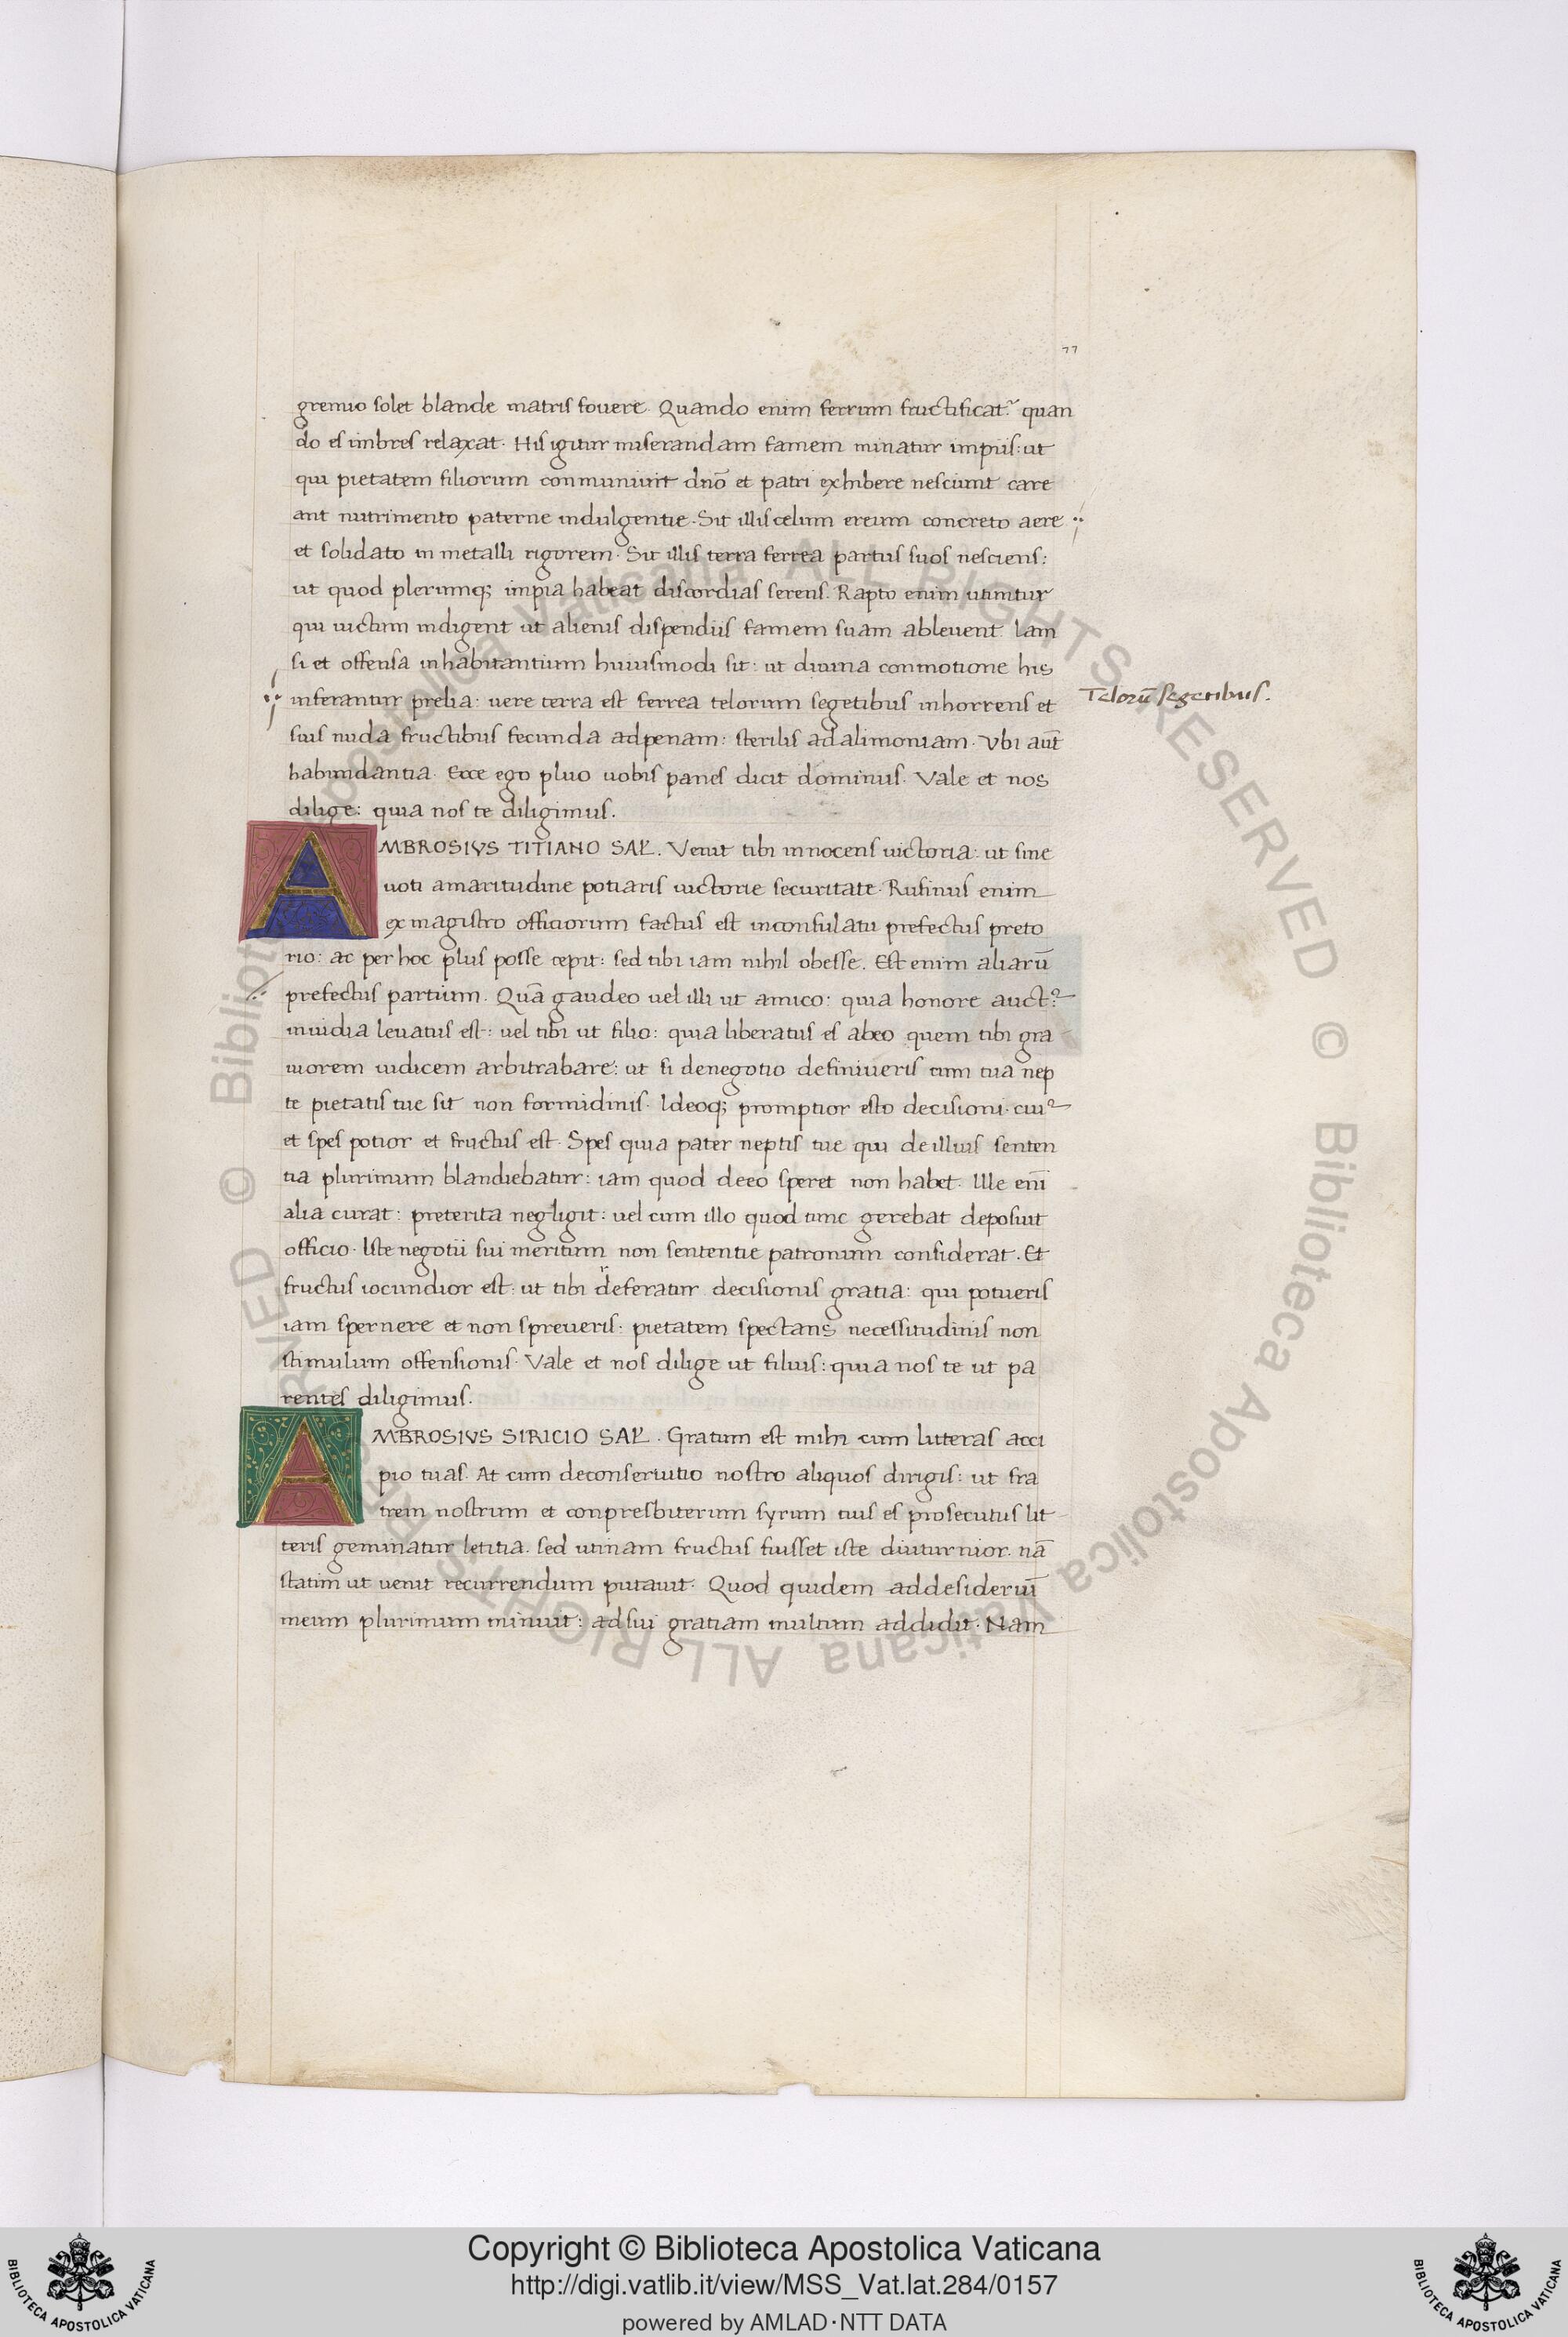 77
gremio solet blande matris fovere. Quando enim ferrum fructificat? quan
do es imbres relaxat. His igitur miserandam famem minatur impiis: ut
qui pietatem filiorum conmuniunt dnō et patri exhibere nesciunt care
ant nutrimento paterne indulgentie. Sit illis celum ereum concreto aere
et solidato in metalli rigorem. Sit illis terra ferrea partus suos nesciens:
ut quod plerumq; impia habeat discordias serens. Rapto enim utuntur
qui uictum indigent ut alienis dispendiis famem suam ableuent. Iam
si et offensa inhabitantium huiusmodi sit: ut diuina conmotione his
inferantur prelia: uere terra est ferrea telorum segetibus inhorrens et
Telorū segetibus.
suis nuda fructibus fecunda adpenam: sterilis adalimoniam. Vbi aūt
habundantia. Ecce ego pluo uobis panes dicit dominus. Vale et nos
dilige: quia nos te diligimus.
AMBROSIVS TITIANO SAL̄. Venit tibi innocens uictoria: ut sine
uoti amaritudine potiaris uictorie securitate. Rufinus enim
ex magistro officiorum factus est inconsulatu prefectus preto
rio: ac per hoc plus posse cepit: sed tibi iam nihil obesse. Est enim aliarū
prefectus partium. Quā gaudeo uel illi ut amico: quia honore auctꝰ
inuidia leuatus est: uel tibi ut filio: quia liberatus es abeo quem tibi gra
uiorem iudicem arbitrabare: ut si denegotio definiueris cum tua nep
te pietatis tue sit non formidinis. Ideoq; promptior esto decisioni. cuiꝰ
et spes potior et fructus est. Spes quia pater neptis tue qui de illius senten
tia plurimum blandiebatur: iam quod deeo speret non habet. Ille enī
alia curat: preterita negligit: uel cum illo quod tunc gerebat deposuit
officio. Iste negotii sui meritum non sententie patronum considerat. Et
fructus iocundior est: ut tibi deferatur decisionis gratia: qui potueris
iam spernere et non spreueris. pietatem spectans necessitudinis non
stimulum offensionis. Vale et nos dilige ut filius: quia nos te ut pa
rentes diligimus.
AMBROSIVS SIRICIO SAL̄. Gratum est mihi cum litteras acci
pio tuas. At cum deconseruitio nostro aliquos dirigis: ut fra
trem nostrum et conpresbiterum syrum tuis es prosecutus lit
teris geminatur letitia. sed utinam fructus fuisset iste diuturnior. nā
statim ut uenit recurrendum putauit. Quod quidem addesideriuī
meum plurimum minuit: adsui gratiam multum addidit. Nam
Copyright © Biblioteca Apostolica Vaticana
http://digi.vatlib.it/view/MSS_Vat.lat.284/0157
powered by AMLAD·NTT DATA
BIBLIOTECA APOSTOLICA VATICANA
BIBLIOTECA APOSTOLICA VATICANA
© Biblioteca Apostolica Vaticana ALL RIGHTS RESERVED © Biblioteca Apostolica Vaticana ALL RIGHTS RESERVED